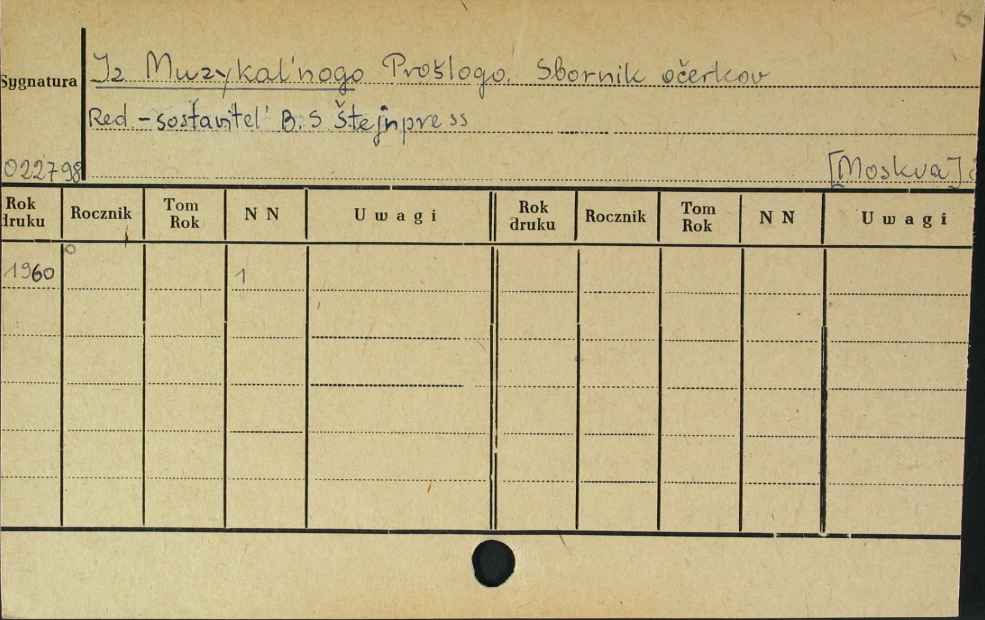 Sygnatura
Iz Muzykal'nogo Prošlogo. Sbornik očerkov
Red.-sostavitel' B.S Štejnpress
022798
[Moskva]
Rok druku Rocznik Tom Rok NN Uwagi Rok druku Rocznik Tom Rok NN Uwagi
1960 1